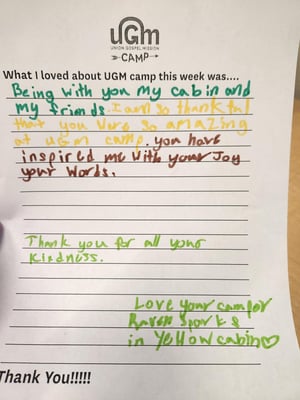 uGm
UNION GOSPEL MISSION
CAMP
What I loved about UGM camp this week was....
Being with you my cabin and
my friends. I am so thankful
that you were so amazing
at UGM camp. you have
inspired me with your Joy
your words.
Thank you for all your
kindness.
Love your camper
Sparks
in Yellow cabin
Thank You!!!!!